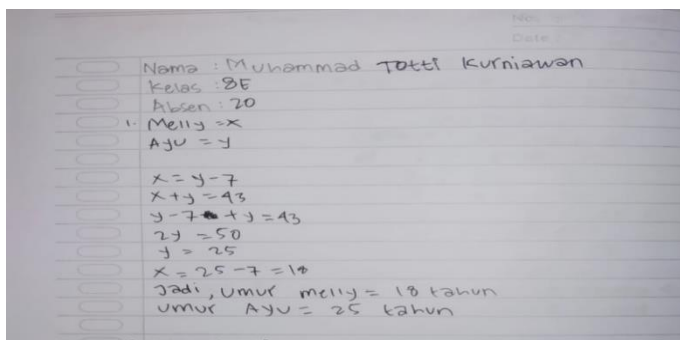 No:
Date:
Nama : Muhammad Totti Kurniawan
Kelas : 8E
Absen : 20
1. Melly = x
Ayu = y
x = y - 7
x + y = 43
y - 7 + y = 43
2y = 50
y = 25
x = 25 - 7 = 18
Jadi, umur melly = 18 tahun
umur Ayu = 25 tahun